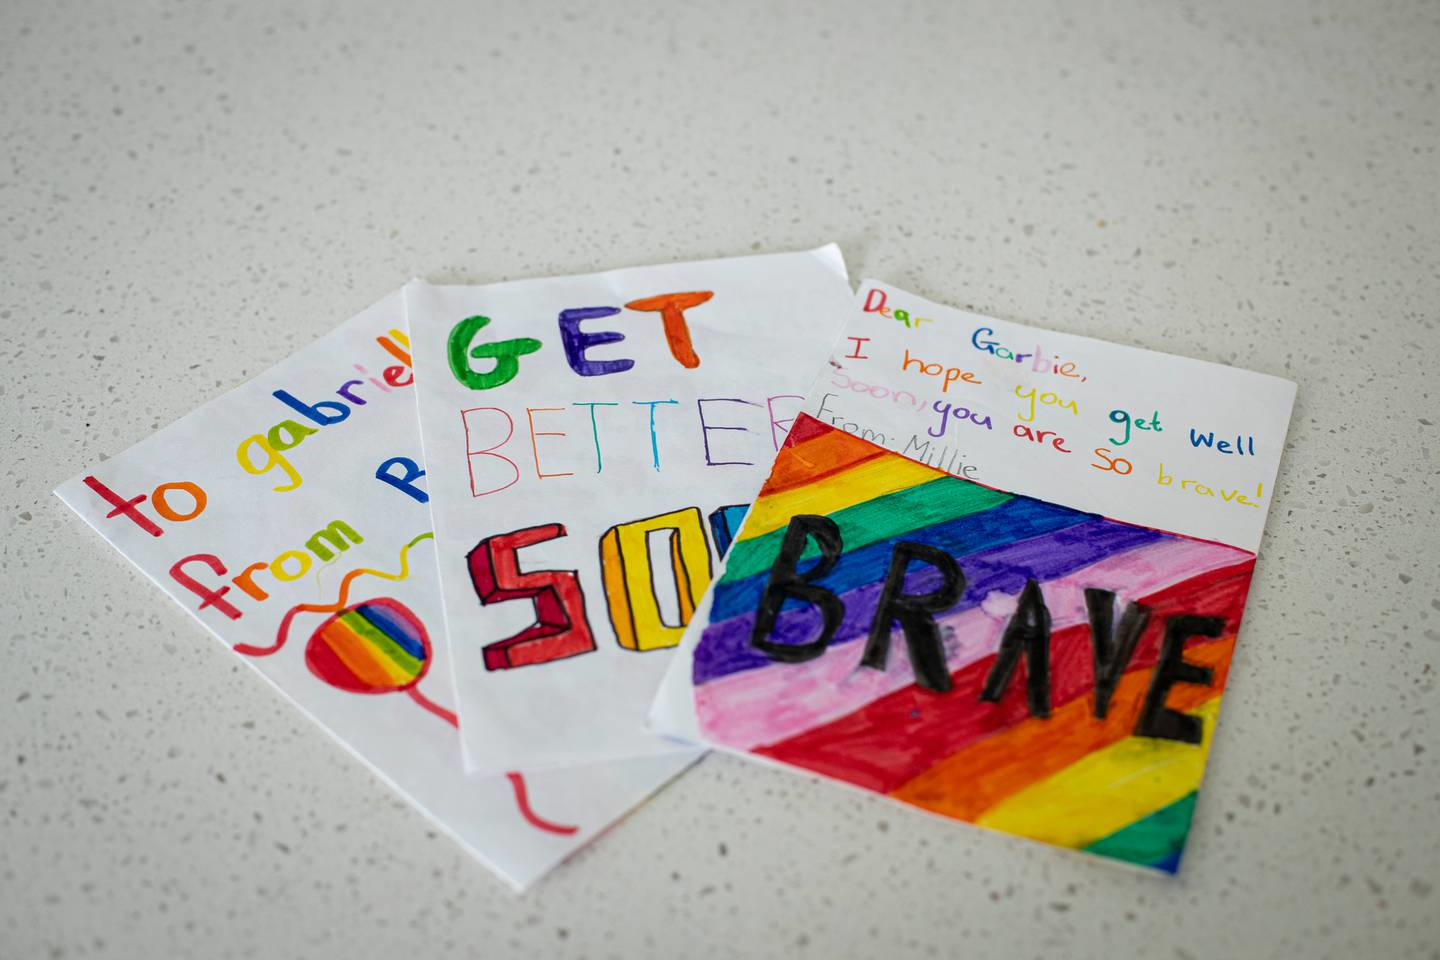 to gabriell
from
GET
BETTER
SO
Dear Garbie,
I hope you get Well
Soon, you are So brave!
From: Millie
BRAVE